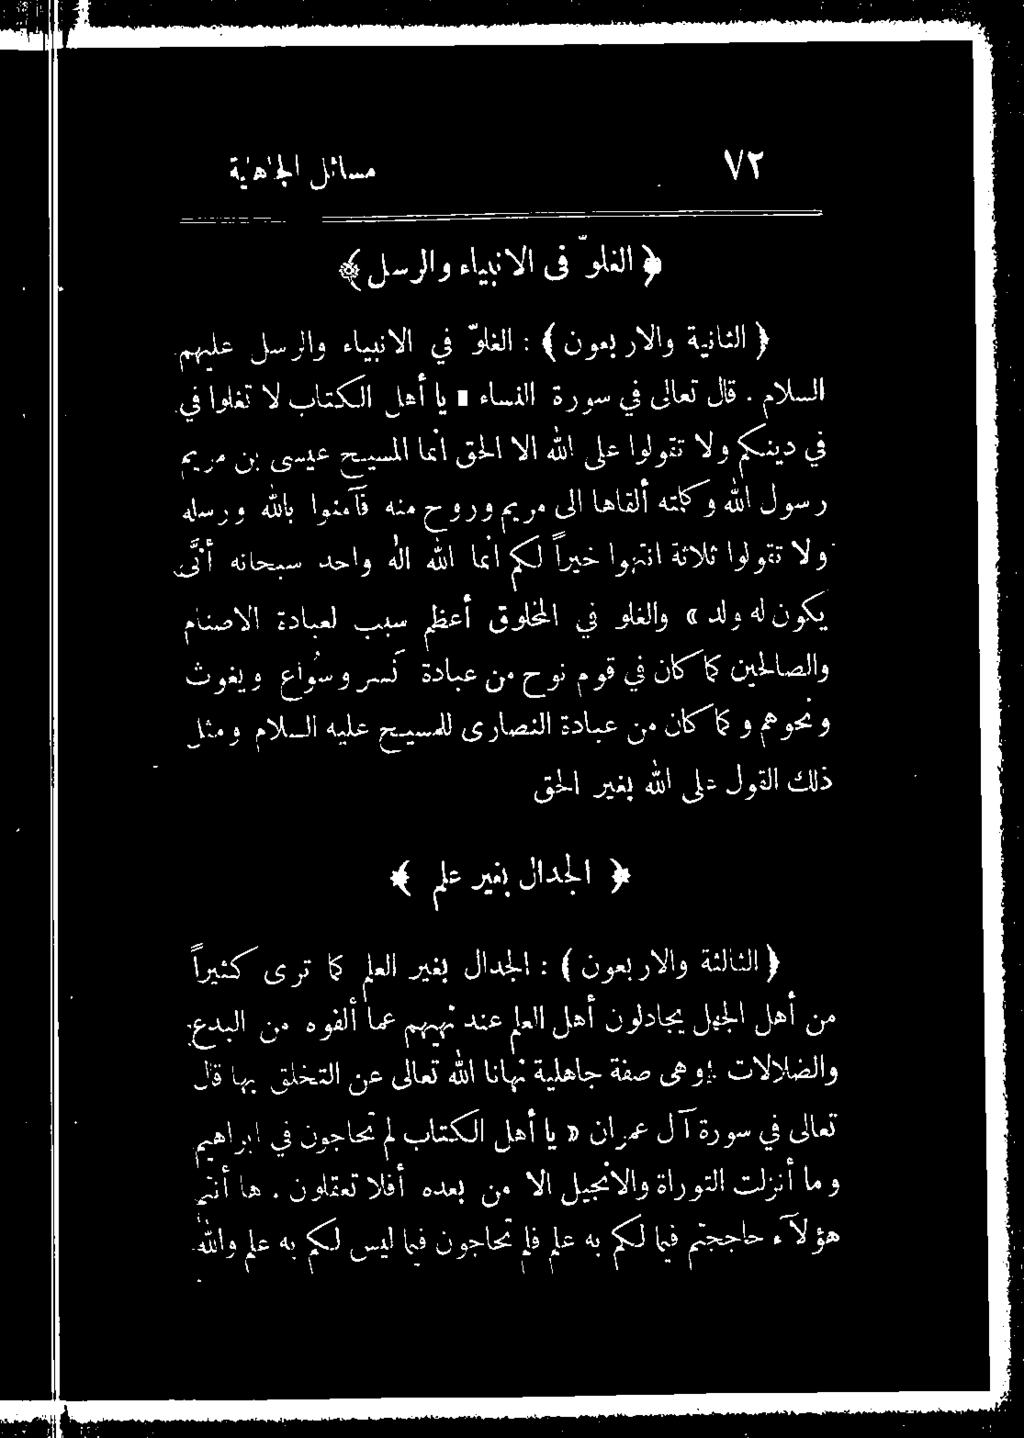 ٧٢ مسائل الجاهلية
﴿ الغلوّ فى الانبياء والرسل ﴾
﴿ الثانية والاربعون ﴾ : الغلوّ في الانبياء والرسل عليهم
السلام . قال تعالى في سورة النساء « يا أهل الكتاب لا تغلوا في
في دينكم ولا تقولوا على الله الا الحق انما المسيح عيسى بن مريم
رسول الله وكلمته ألقاها الى مريم وروح منه فآمنوا بالله ورسله
ولا تقولوا ثلاثة انتهوا خيراً لكم انما الله اله واحد سبحانه أنّى
يكون له ولد » والغلو في المخلوق أعظم سبب لعبادة الاصنام
والصالحين كما كان في قوم نوح من عبادة نَسر وسُواع ويغوث
ونحوهم وكما كان من عبادة النصارى للمسيح عليه السلام ومثل
ذلك القول على الله بغير الحق
﴿ الجدال بغير علم ﴾
﴿ الثالثة والاربعون ﴾ : الجدال بغير العلم كما ترى كثيراً
من أهل الجهل يجادلون أهل العلم عند نهيهم عما ألفوه من البدع
والضلالات وهى صفة جاهلية نهانا الله تعالى عن التخلق بها قال
تعالى في سورة آل عمران « يا أهل الكتاب لم تحاجون في ابراهيم
وما أنزلت التوراة والانجيل الا من بعده أفلا تعقلون . ها أنتم
هؤلآء حاججتم فيما لكم به علم فلم تحاجون فيما ليس لكم به علم والله